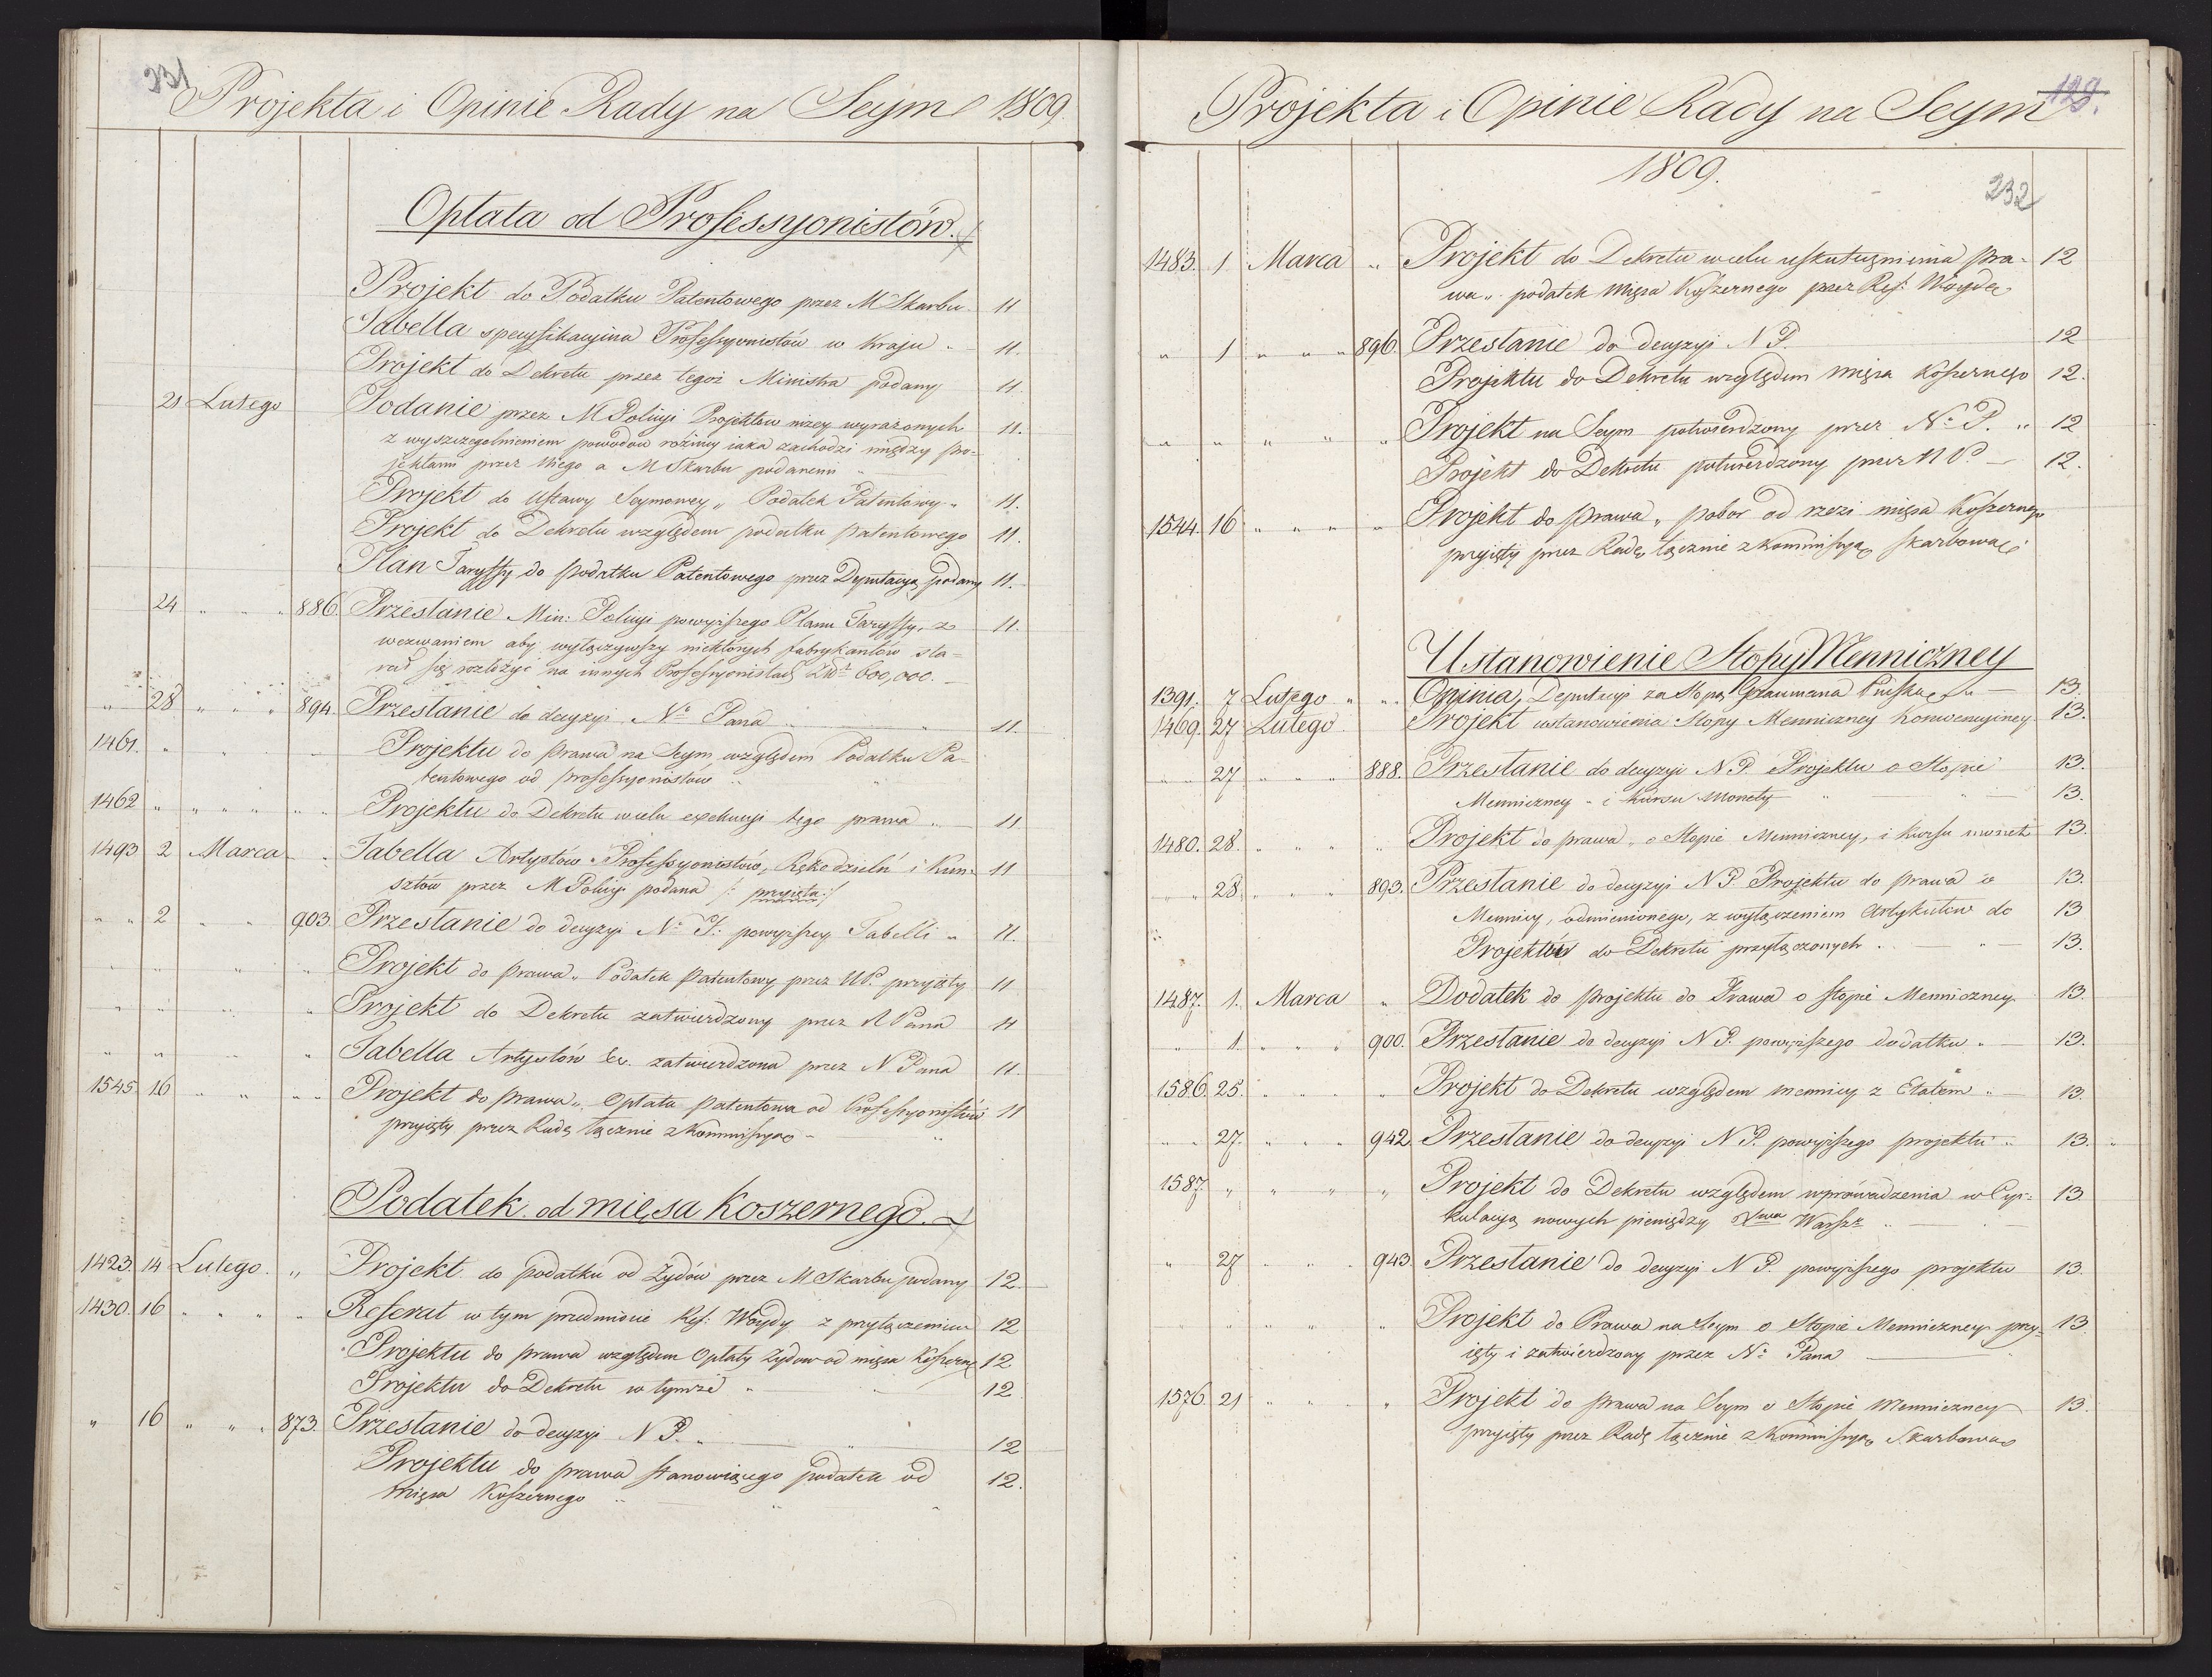 231
Projekta i Opinie Rady na Seym 1809.
Opłata od Professyonistów.
Projekt do Podatku Patentowego przez M Skarbu. 11
Tabella specyfikacyina Professyonistów w Kraju - 11.
Projekt do Dekretu przez tegoż Ministra podany 11.
21 Lutego Podanie przez M Policyi Projektów niżey wyrażonych 11.
z wyszczegolnieniem powodów rożnicy iaka zachodzi między pro-
jektami przez Niego a M Skarbu podanemi "
Projekt do Ustawy Seymowey „ Podatek Patentowy " 11.
Projekt do Dekretu względem podatku patentowego 11.
Plan Taryffy do podatku Patentowego przez Deputacyą podany 11.
24 " " " 886. Przesłanie Min: Policyi powyższego Planu Taryffy, z 11.
wezwaniem aby wyłączywszy niektórych fabrykantów sta-
rał się rozłożyć na innych Professyonistach 600,000. -
" 28 " " " 894. Przesłanie do decyzyi Nº Pana " 11.
1461. " Projektu do Prawa na Seym względem Podatku Pa-
tentowego od professyonistów "
1462 " " " " " Projektu do Dekretu w celu exekucyi tego prawa " 11
1493 2 Marca " Tabella Artystów Professyonistów, Rękodzieln i Kun- 11
sztów przez M Policyi podana /: przyięta :/
" " 2 " " 903. Przesłanie do decyzyi Nº P: powyższey Tabelli " 11.
" " " " Projekt do prawa „ Podatek patentowy przez NP. przyięty 11
" " " " Projekt do Dekretu zatwierdzony przez N Pana 11
" " " " Tabella Artystów &c. zatwierdzona przez N Pana 11.
1545. 16 " " " Projekt do prawa „ Opłata patentowa od Professyonistów 11
przyięty przez Radę łącznie z Kommissyą "
Podatek od mięsa Koszernego.
1423. 14 Lutego. " Projekt do podatku od Żydów przez M Skarbu podany 12.
1430. 16 " " " Referat w tym przedmiocie Ref: Woydy z przyłączeniem 12
Projektu do prawa względem Opłaty Żydow od mięsa Koszern: 12
Projektu do Dekretu w tymże " 12.
" 16 " " " 873. Przesłanie do decyzyi N P. " 12
Projektu do prawa stanowiącego podatek od 12.
mięsa Koszernego "
Projekta i Opinie Rady na Seym
129.
1809.
232
1483. 1 Marca " Projekt do Dekretu w celu uskutecznienia pra- 12
wa „ podatek mięsa Koszernego przez Ref: Woydę
" 1 " " " 896. Przesłanie do decyzyi N P. 12
Projektu do Dekretu względem mięsa Koszernego 12.
" " " " " Projekt na Seym potwierdzony przez Nº P. " 12
Projekt do Dekretu potwierdzony przez N P. - 12.
1544. 16 " " " " Projekt do prawa „ pobor od rzezi mięsa Koszernego
przyięty przez Radę łącznie z Kommissyą skarbową
Ustanowienie Stopy Menniczney
1391. 7 Lutego " " Opinia, Deputacyi za stopą Graumana Pruską " 13.
1469. 27 Lutego Projekt ustanowienia Stopy Menniczney Konwencyiney 13.
" " 27 " " " 888. Przesłanie do decyzyi N P. Projektu o Stopie 13.
Menniczney " i Kursu Monety " 13.
1480. 28. " " " Projekt do prawa „ o Stopie Menniczney, i Kursu monet 13.
" " 28. " " 893. Przesłanie do decyzyi N P. Projektu do prawa o 13.
Mennicy, odmienionego, z wyłączeniem Artykułow do 13
Projektów do Dekretu przyłączonych . " 13.
1487. 1. Marca " Dodatek do projektu do Prawa o stopie Menniczney. 13.
" 1. " " " 900. Przesłanie do decyzyi N P. powyższego dodatku " 13.
1586. 25. " " " Projekt do Dekretu względem mennicy z Etatem " 13.
" " 27. " " " 942. Przesłanie do decyzyi N P. powyższego projektu " 13. "
1587. " " " " Projekt do Dekretu względem wprowadzenia w Cyr- 13
kulacyą nowych pieniędzy Xwa Warszº "
" 27 " " " 943. Przesłanie do decyzyi N P. powyższego projektu 13.
" " " " " Projekt do Prawa na Seym o Stopie Menniczney przy- 13.
ięty i zatwierdzony przez Nº Pana "
1576. 21 " " " " Projekt do prawa na Seym o Stopie Menniczney 13.
przyięty przez Radę łącznie z Kommissyą Skarbową